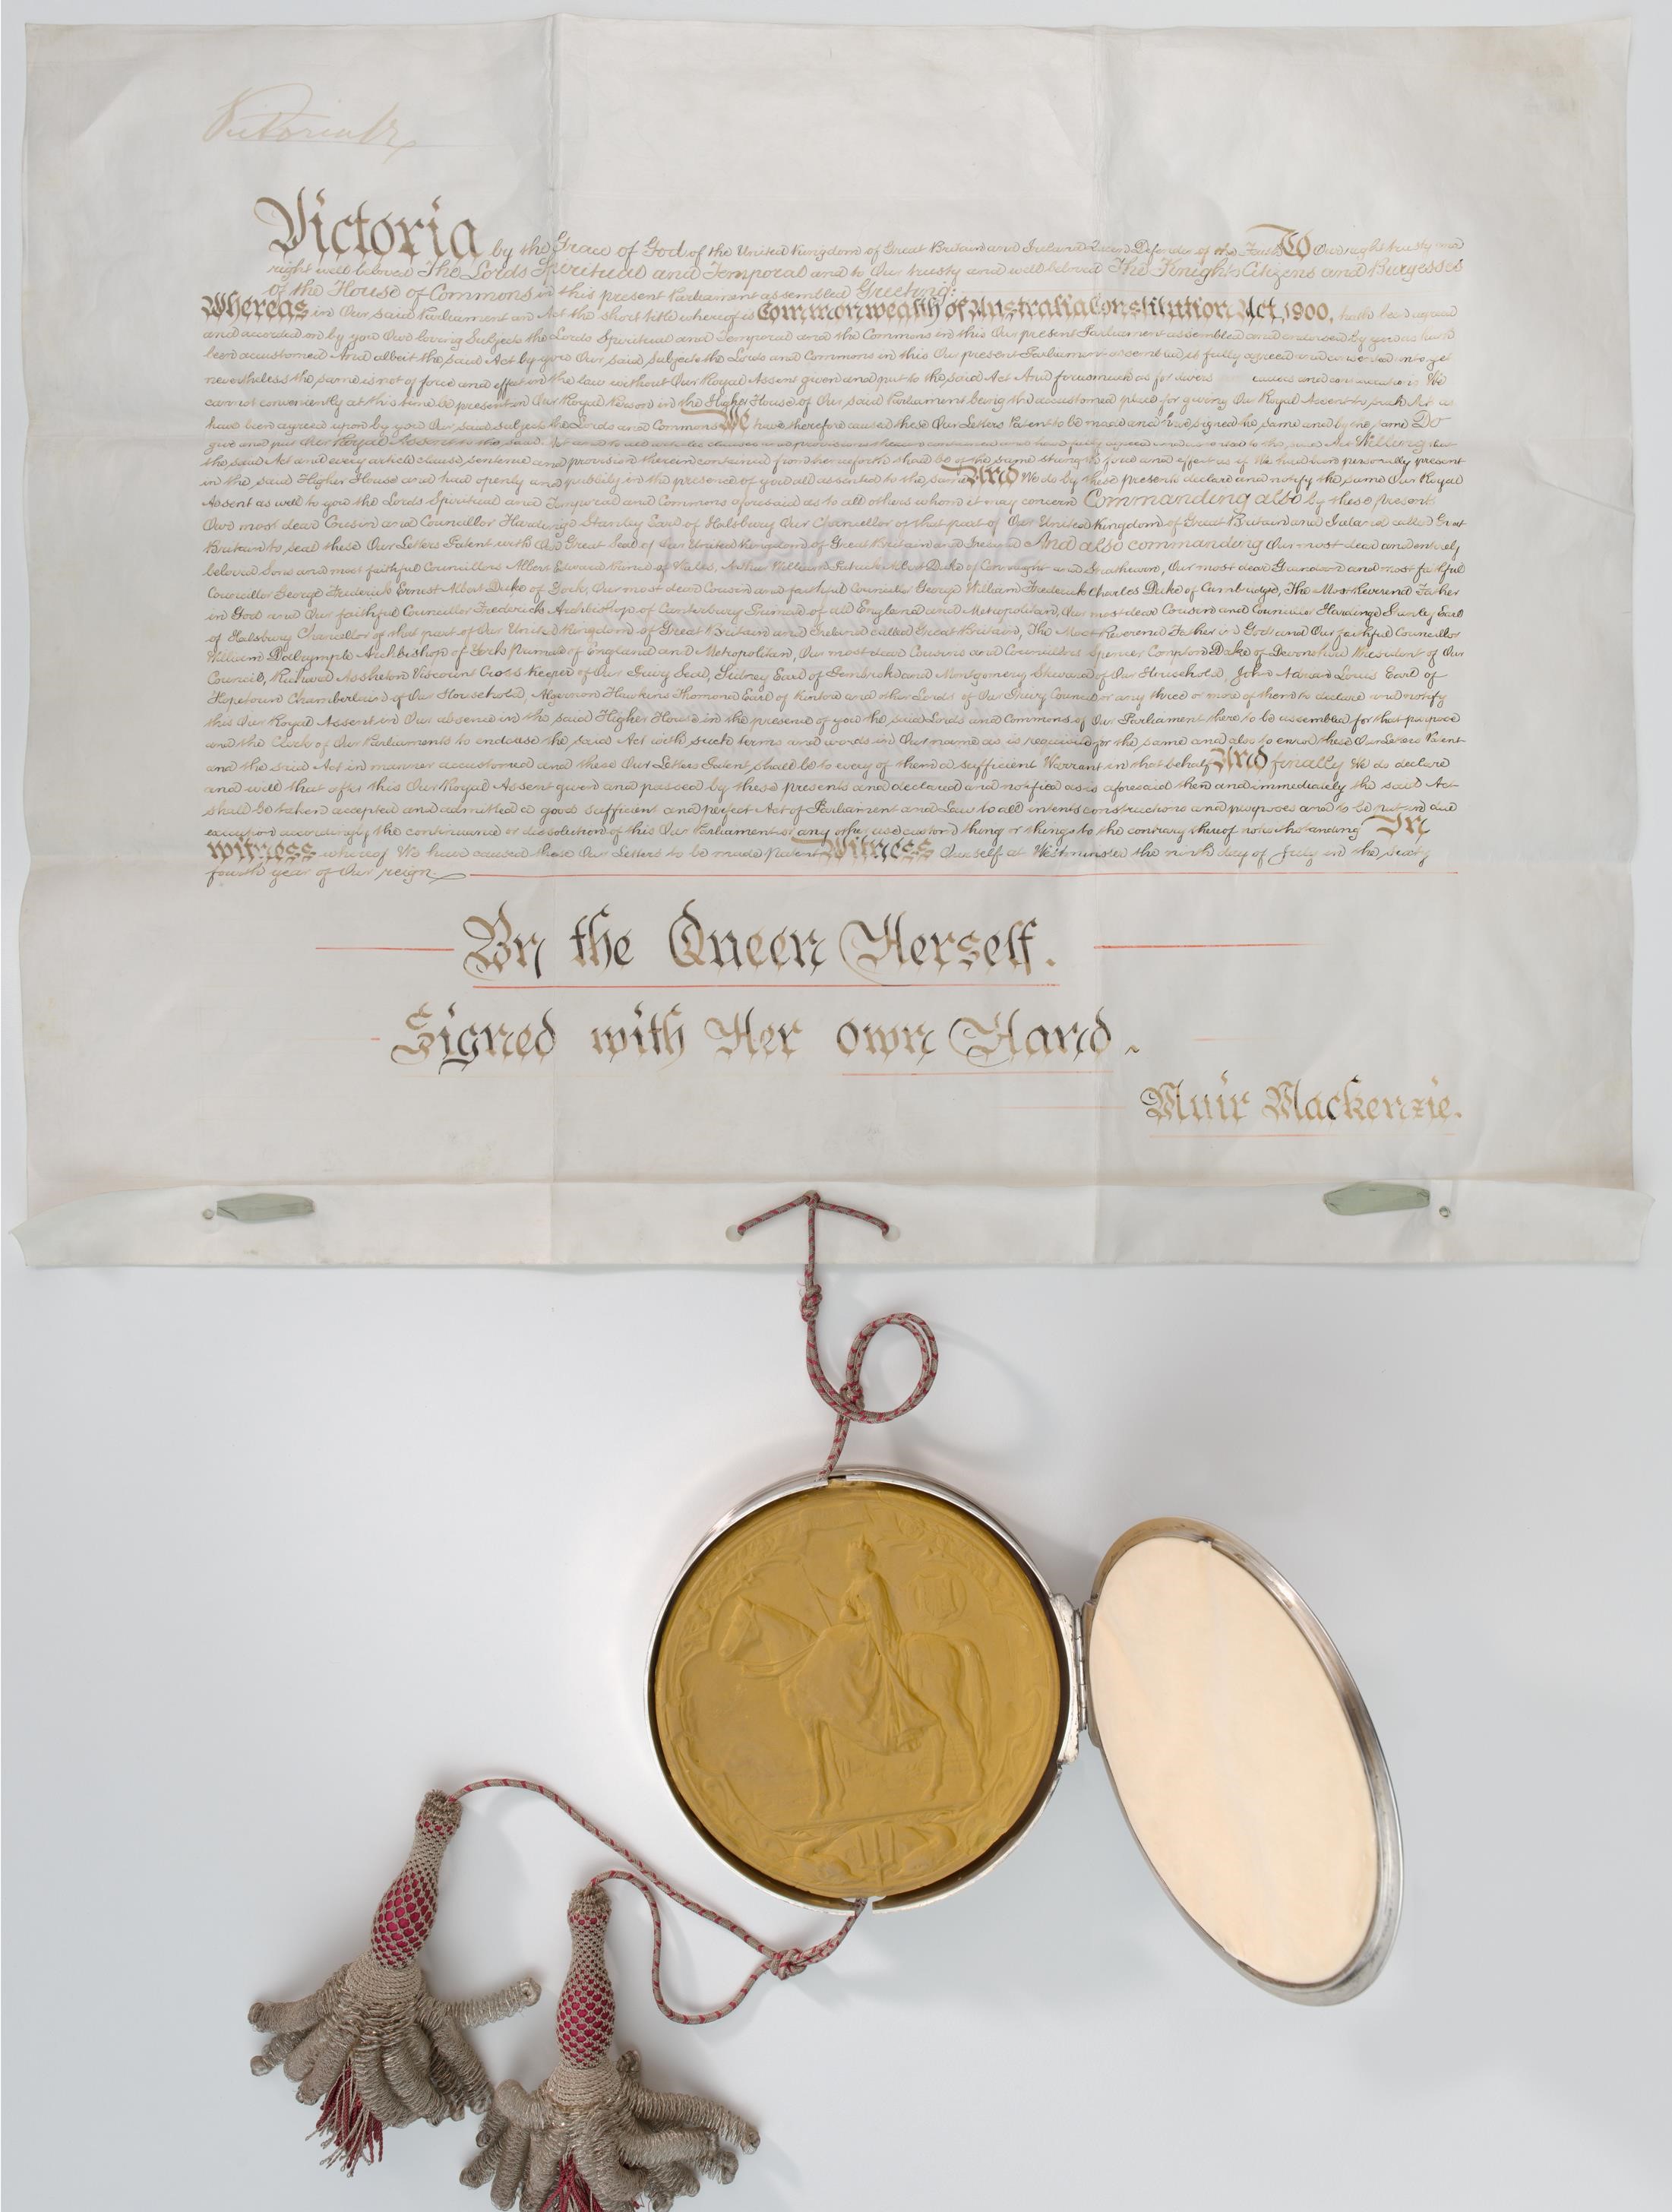 Victoria R
Victoria by the Grace of God of the United Kingdom of Great Britain and Ireland Queen Defender of the Faith To Our right trusty and
right well beloved The Lords Spiritual and Temporal and to Our trusty and well beloved The Knights Citizens and Burgesses
of the House of Commons in this present Parliament assembled Greeting:
Whereas in Our said Parliament an Act the short title whereof is Commonwealth of Australia Constitution Act, 1900, hath been agreed
and accorded on by you Our loving Subjects the Lords Spiritual and Temporal and the Commons in this Our present Parliament assembled and endorsed by you as hath
been accustomed And albeit the said Act by you Our said Subjects the Lords and Commons in this Our present Parliament assembled is fully agreed and consented unto yet
nevertheless the same is not of force and effect in the law without Our Royal Assent given and put to the said Act And forasmuch as for divers causes and considerations We
cannot conveniently at this time be present in Our Royal Person in the Higher House of Our said Parliament being the accustomed place for giving Our Royal Assent to such Act as
have been agreed upon by you Our said subjects the Lords and Commons We have therefore caused these Our Letters Patent to be made and have signed the same and by the same Do
give and put Our Royal Assent to the said Act and to all articles clauses and provisions therein contained and have fully agreed and assented to the said Act Willing that
the said Act and every article clause sentence and provision therein contained from henceforth shall be of the same strength force and effect as if We had been personally present
in the said Higher House and had openly and publicly in the presence of you all assented to the same And We do by these presents declare and notify the same Our Royal
Assent as well to you the Lords Spiritual and Temporal and Commons aforesaid as to all others whom it may concern Commanding also by these presents
Our most dear Cousin and Councillor Hardinge Stanley Earl of Halsbury Our Chancellor of that part of Our United Kingdom of Great Britain and Ireland called Great
Britain to seal these Our Letters Patent with Our Great Seal of Our United Kingdom of Great Britain and Ireland And also commanding Our most dear and entirely
beloved Sons and most faithful Councillors Albert Edward Prince of Wales, Arthur William Patrick Albert Duke of Connaught and Strathearn, Our most dear Grandson and most faithful
Councillor George Frederick Ernest Albert Duke of York, Our most dear Cousin and faithful Councillor George William Frederick Charles Duke of Cambridge, The Most Reverend Father
in God and Our faithful Councillor Frederick Archbishop of Canterbury Primate of all England and Metropolitan, Our most dear Cousin and Councillor Hardinge Stanley Earl
of Halsbury Chancellor of that part of Our United Kingdom of Great Britain and Ireland called Great Britain, The Most Reverend Father in God and Our faithful Councillor
William Dalrymple Archbishop of York Primate of England and Metropolitan, Our most dear Cousins and Councillors Spencer Compton Duke of Devonshire President of Our
Council, Richard Assheton Viscount Cross Keeper of Our Privy Seal, Sidney Earl of Pembroke and Montgomery Steward of Our Household, John Adrian Louis Earl of
Hopetoun Chamberlain of Our Household, Algernon Hawkins Thomond Earl of Kintore and other Lords of Our Privy Council or any three or more of them to declare and notify
this Our Royal Assent in Our absence in the said Higher House in the presence of you the said Lords and Commons of Our Parliament there to be assembled for that purpose
and the Clerk of Our Parliaments to endorse the said Act with such terms and words in Our name as is requisite for the same and also to enrol these Our Letters Patent
and the said Act in manner accustomed and these Our Letters Patent shall be to every of them a sufficient Warrant in that behalf And finally We do declare
and will that after this Our Royal Assent given and passed by these presents and declared and notified as is aforesaid then and immediately the said Act
shall be taken accepted and admitted a good sufficient and perfect Act of Parliament and Law to all intents constructions and purposes and to be put in due
execution accordingly the continuance or dissolution of this Our Parliament or any other use custom thing or things to the contrary thereof notwithstanding In
witness whereof We have caused these Our Letters to be made Patent Witness Ourself at Westminster the ninth day of July in the sixty
fourth year of Our reign.
By the Queen Herself.
Signed with Her own Hand.
Muir Mackenzie.